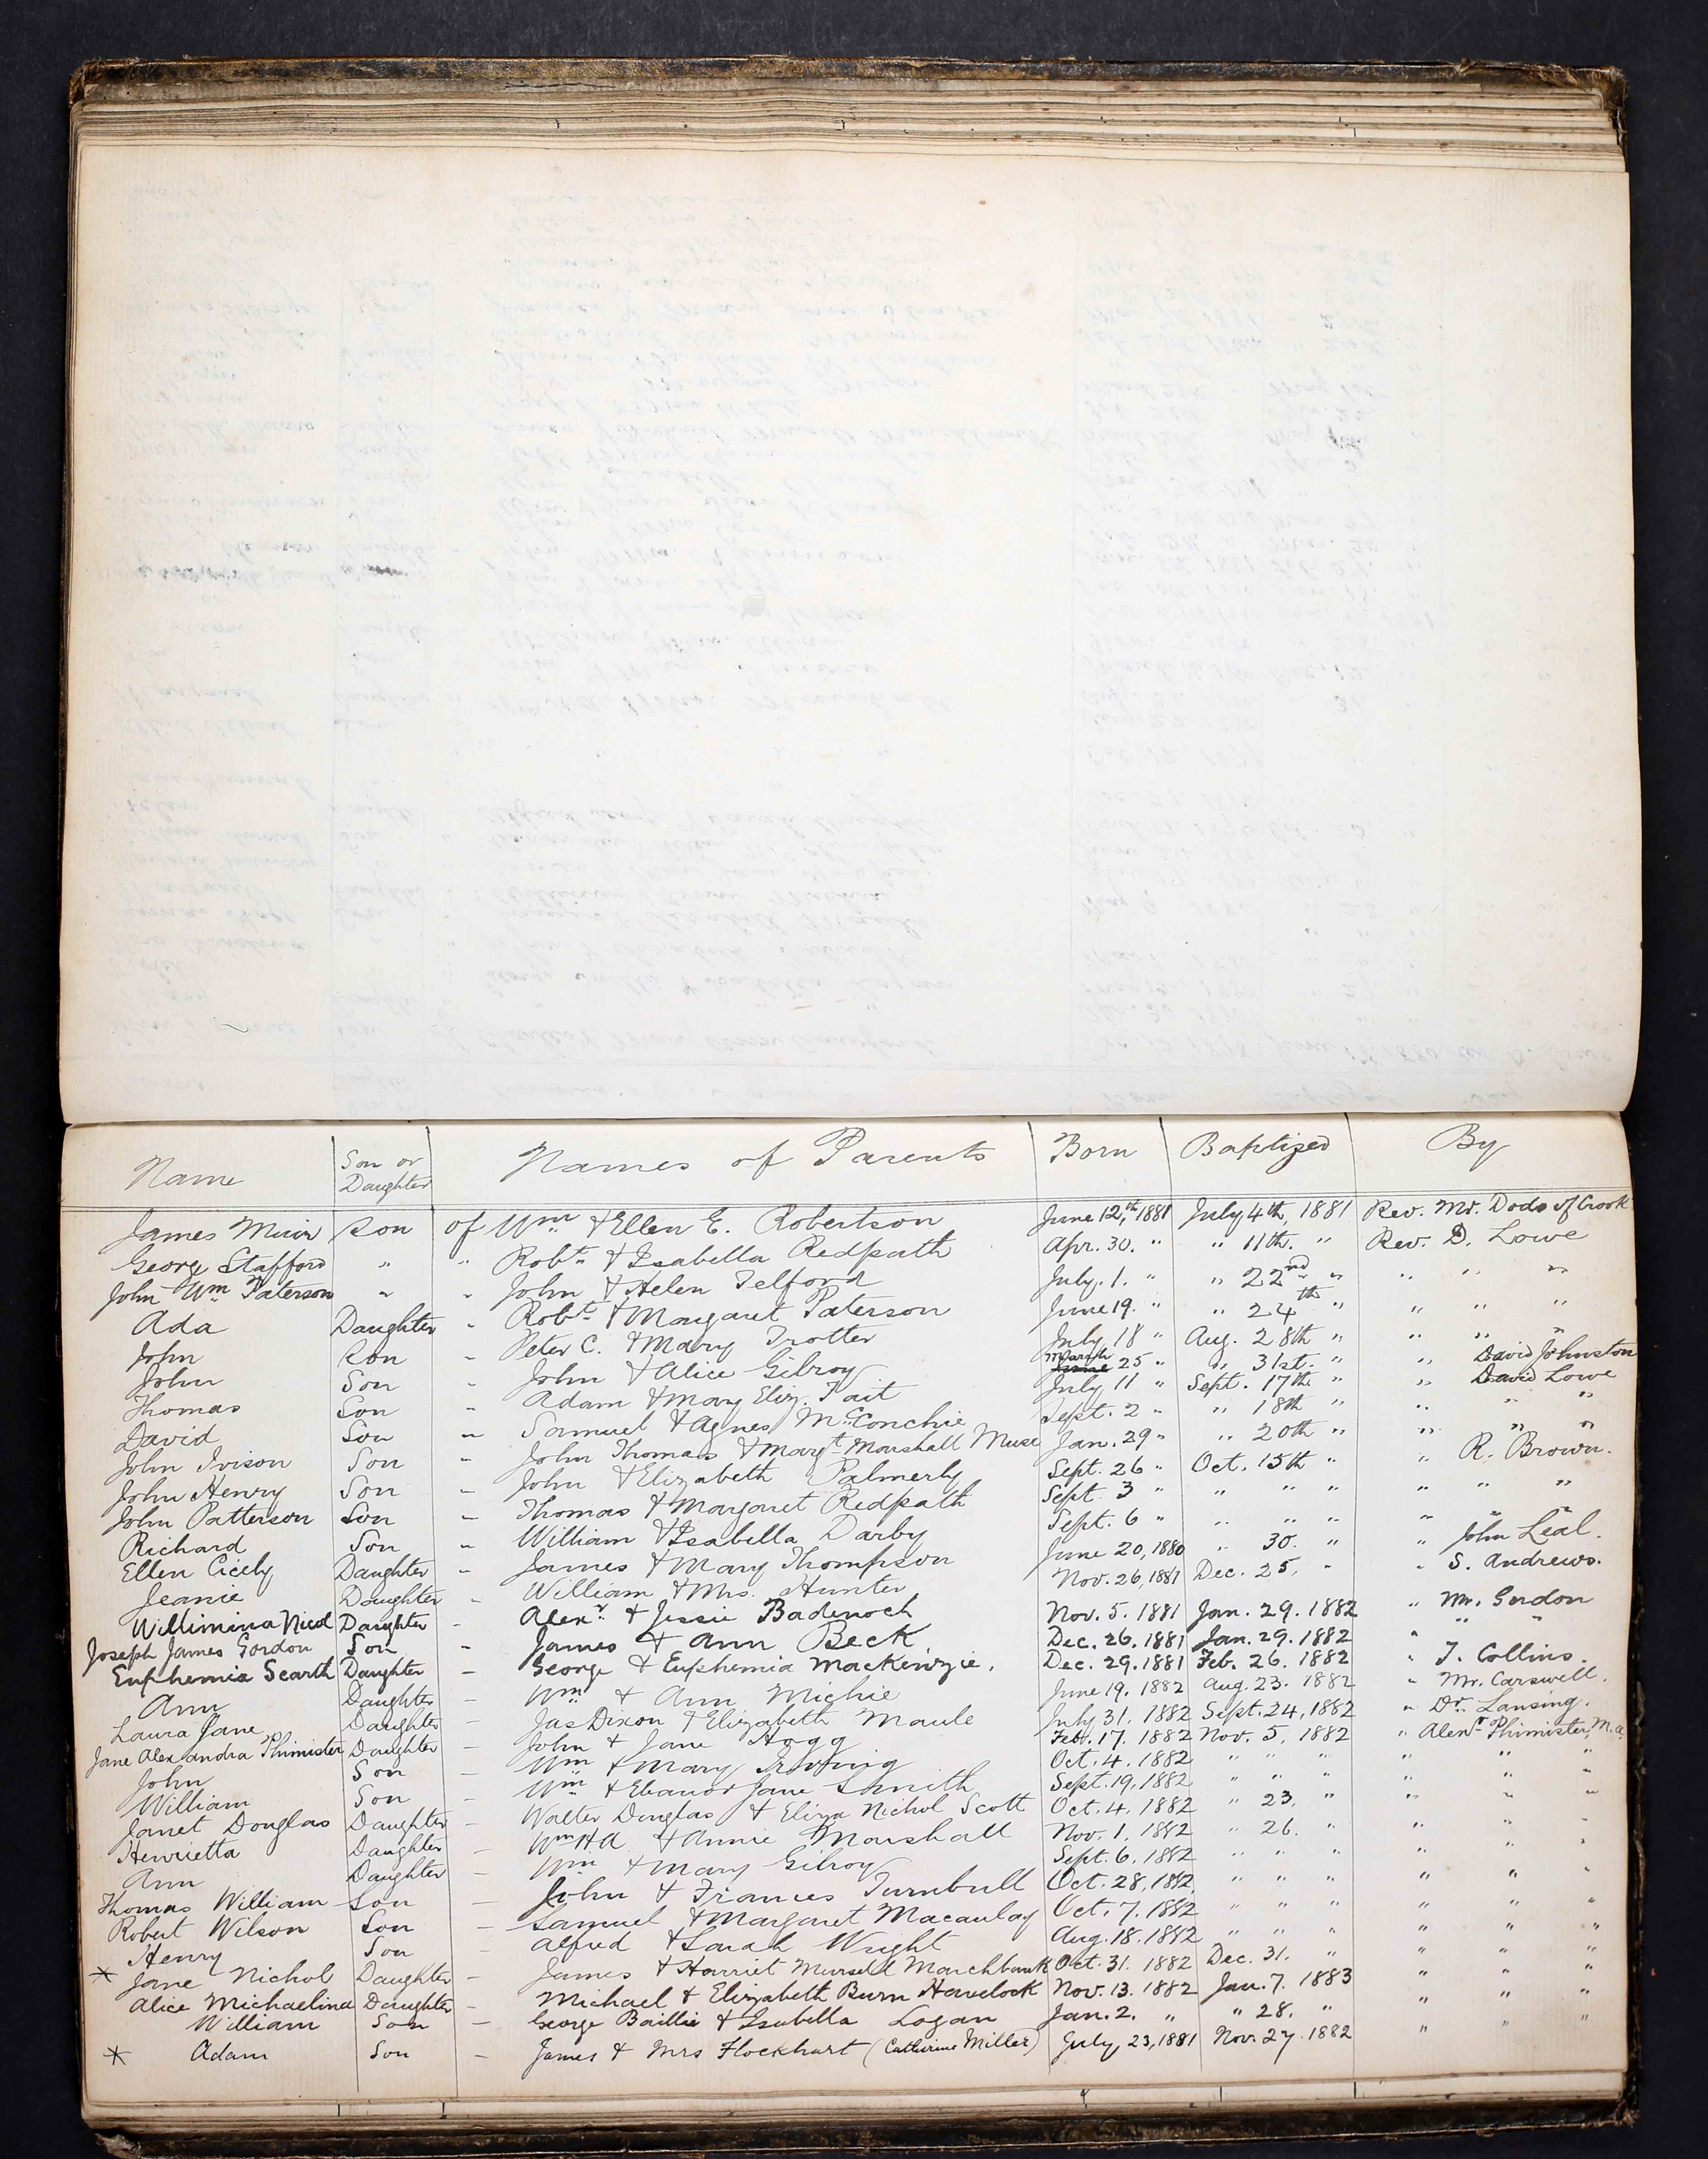 Name Son or Daughter Names of Parents Born Baptized By
James Muir Son of Wm & Ellen E. Robertson June 12,th 1881 July 4th, 1881 Rev. Mr. Dodo of Crook
George Stafford " " Robt & Isabella Redpath Apr. 30. " " 11th. " Rev. D. Lowe
John Wm Paterson " " John & Helen Telford July. 1. " " 22nd " " " "
Ada Daughter " Robt & Margaret Paterson June 19. " " 24th " " " "
John Son " Peter C. & Mary Trotter July 18 " Aug. 28th " " " "
John Son " John & Alice Gilroy March 25 " " 31st. " " David Johnston
Thomas Son " Adam & Mary Eliz. Tait July 11 " Sept. 17th " " David Lowe
David Son " Samuel & Agnes McConchie Sept. 2 " " 18th " " " "
John Ivison Son " John Thomas & Margt Marshall Muse Jan. 29 " " 20th " " " "
John Henry Son " John & Elizabeth Palmerly Sept. 26 " Oct. 15th " " R. Brown.
John Patterson Son " Thomas & Margaret Redpath Sept. 3 " " " " " " "
Richard Son " William & Isabella Darby Sept. 6 " " " " " " "
Ellen Cicely Daughter " James & Mary Thompson June 20, 1880 " 30. " " John Leal.
Jeanie Daughter " William & Mrs. Hunter Nov. 26, 1881 Dec. 25, " " S. Andrews.
Willimina Nicol Daughter - Alexr. & Jessie Badenoch Nov. 5. 1881 Jan. 29. 1882 " Mr. Gordon
Joseph James Gordon Son - James & Ann Beck. Dec. 26. 1881 Jan. 29. 1882 " " "
Euphemia Scarth Daughter - George & Euphemia Mackenzie. Dec. 29. 1881 Feb. 26. 1882 " T. Collins.
Ann Daughter - Wm & Ann Michie June 19. 1882 Aug. 23. 1882 " Mr. Carswell.
Laura Jane Daughter - Jas Dixon & Elizabeth Maule July 31. 1882 Sept. 24, 1882 " Dr. Lansing.
Jane Alexandra Phimister Daughter - John & Jane Hogg Feb. 17. 1882 Nov. 5, 1882 " Alexr Phimister, M.a.
John Son - Wm & Mary Irving Oct. 4. 1882 " " " " " "
William Son - Wm & Eleanor Jane Smith Sept. 19. 1882 " " " " " "
Janet Douglas Daughter - Walter Douglas & Eliza Nichol Scott Oct. 4. 1882 " 23. " " " "
Henrietta Daughter - Wm H.A. & Annie Marshall Nov. 1. 1882 " 26. " " " "
Ann Daughter - Wm & Mary Gilroy Sept. 6. 1882 " " " " " "
Thomas William Son - John & Frances Turnbull Oct. 28, 1882. " " " " " "
Robert Wilson Son - Samuel & Margaret Macaulay Oct. 7. 1882 " " " " " "
Henry Son - Alfred & Sarah Wright Aug. 18. 1882 " " " " " "
* Jane Nichol Daughter - James & Harriet Mursell Marchbank Oct. 31. 1882 Dec. 31. " " " "
Alice Michaelina Daughter - Michael & Elizabeth Burn Havelock Nov. 13. 1882 Jan. 7. 1883 " " "
William Son - George Baillie & Isabella Logan Jan. 2. " " 28. " " " "
* Adam Son - James & Mrs Flockhart (Catherine Miller) July 23, 1881 Nov. 27. 1882 " " "